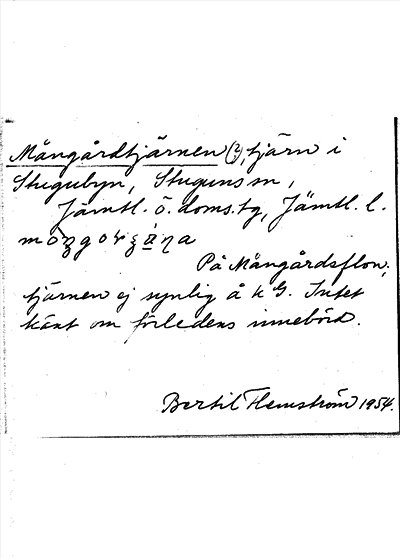 Mångårdtjärnen (?), tjärn i
Stugubyn, Stuguns sn,
Jämtl. ö. doms.tg, Jämtl. l.
På Mångårdsflon,
tjärnen ej synlig å k G. Intet
känt om förledens innebörd.
Bertil Flemström 1954.